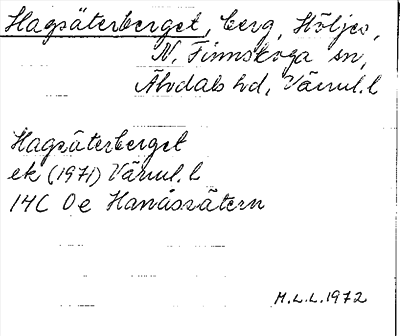 Hagsäterberget, berg, Höljes,
N. Finnskoga sn,
Älvdals hd, Värml. l
Hagsäterberget
ek (1971) Värml. l
14C 0e Hanåssätern
M.L.L. 1972